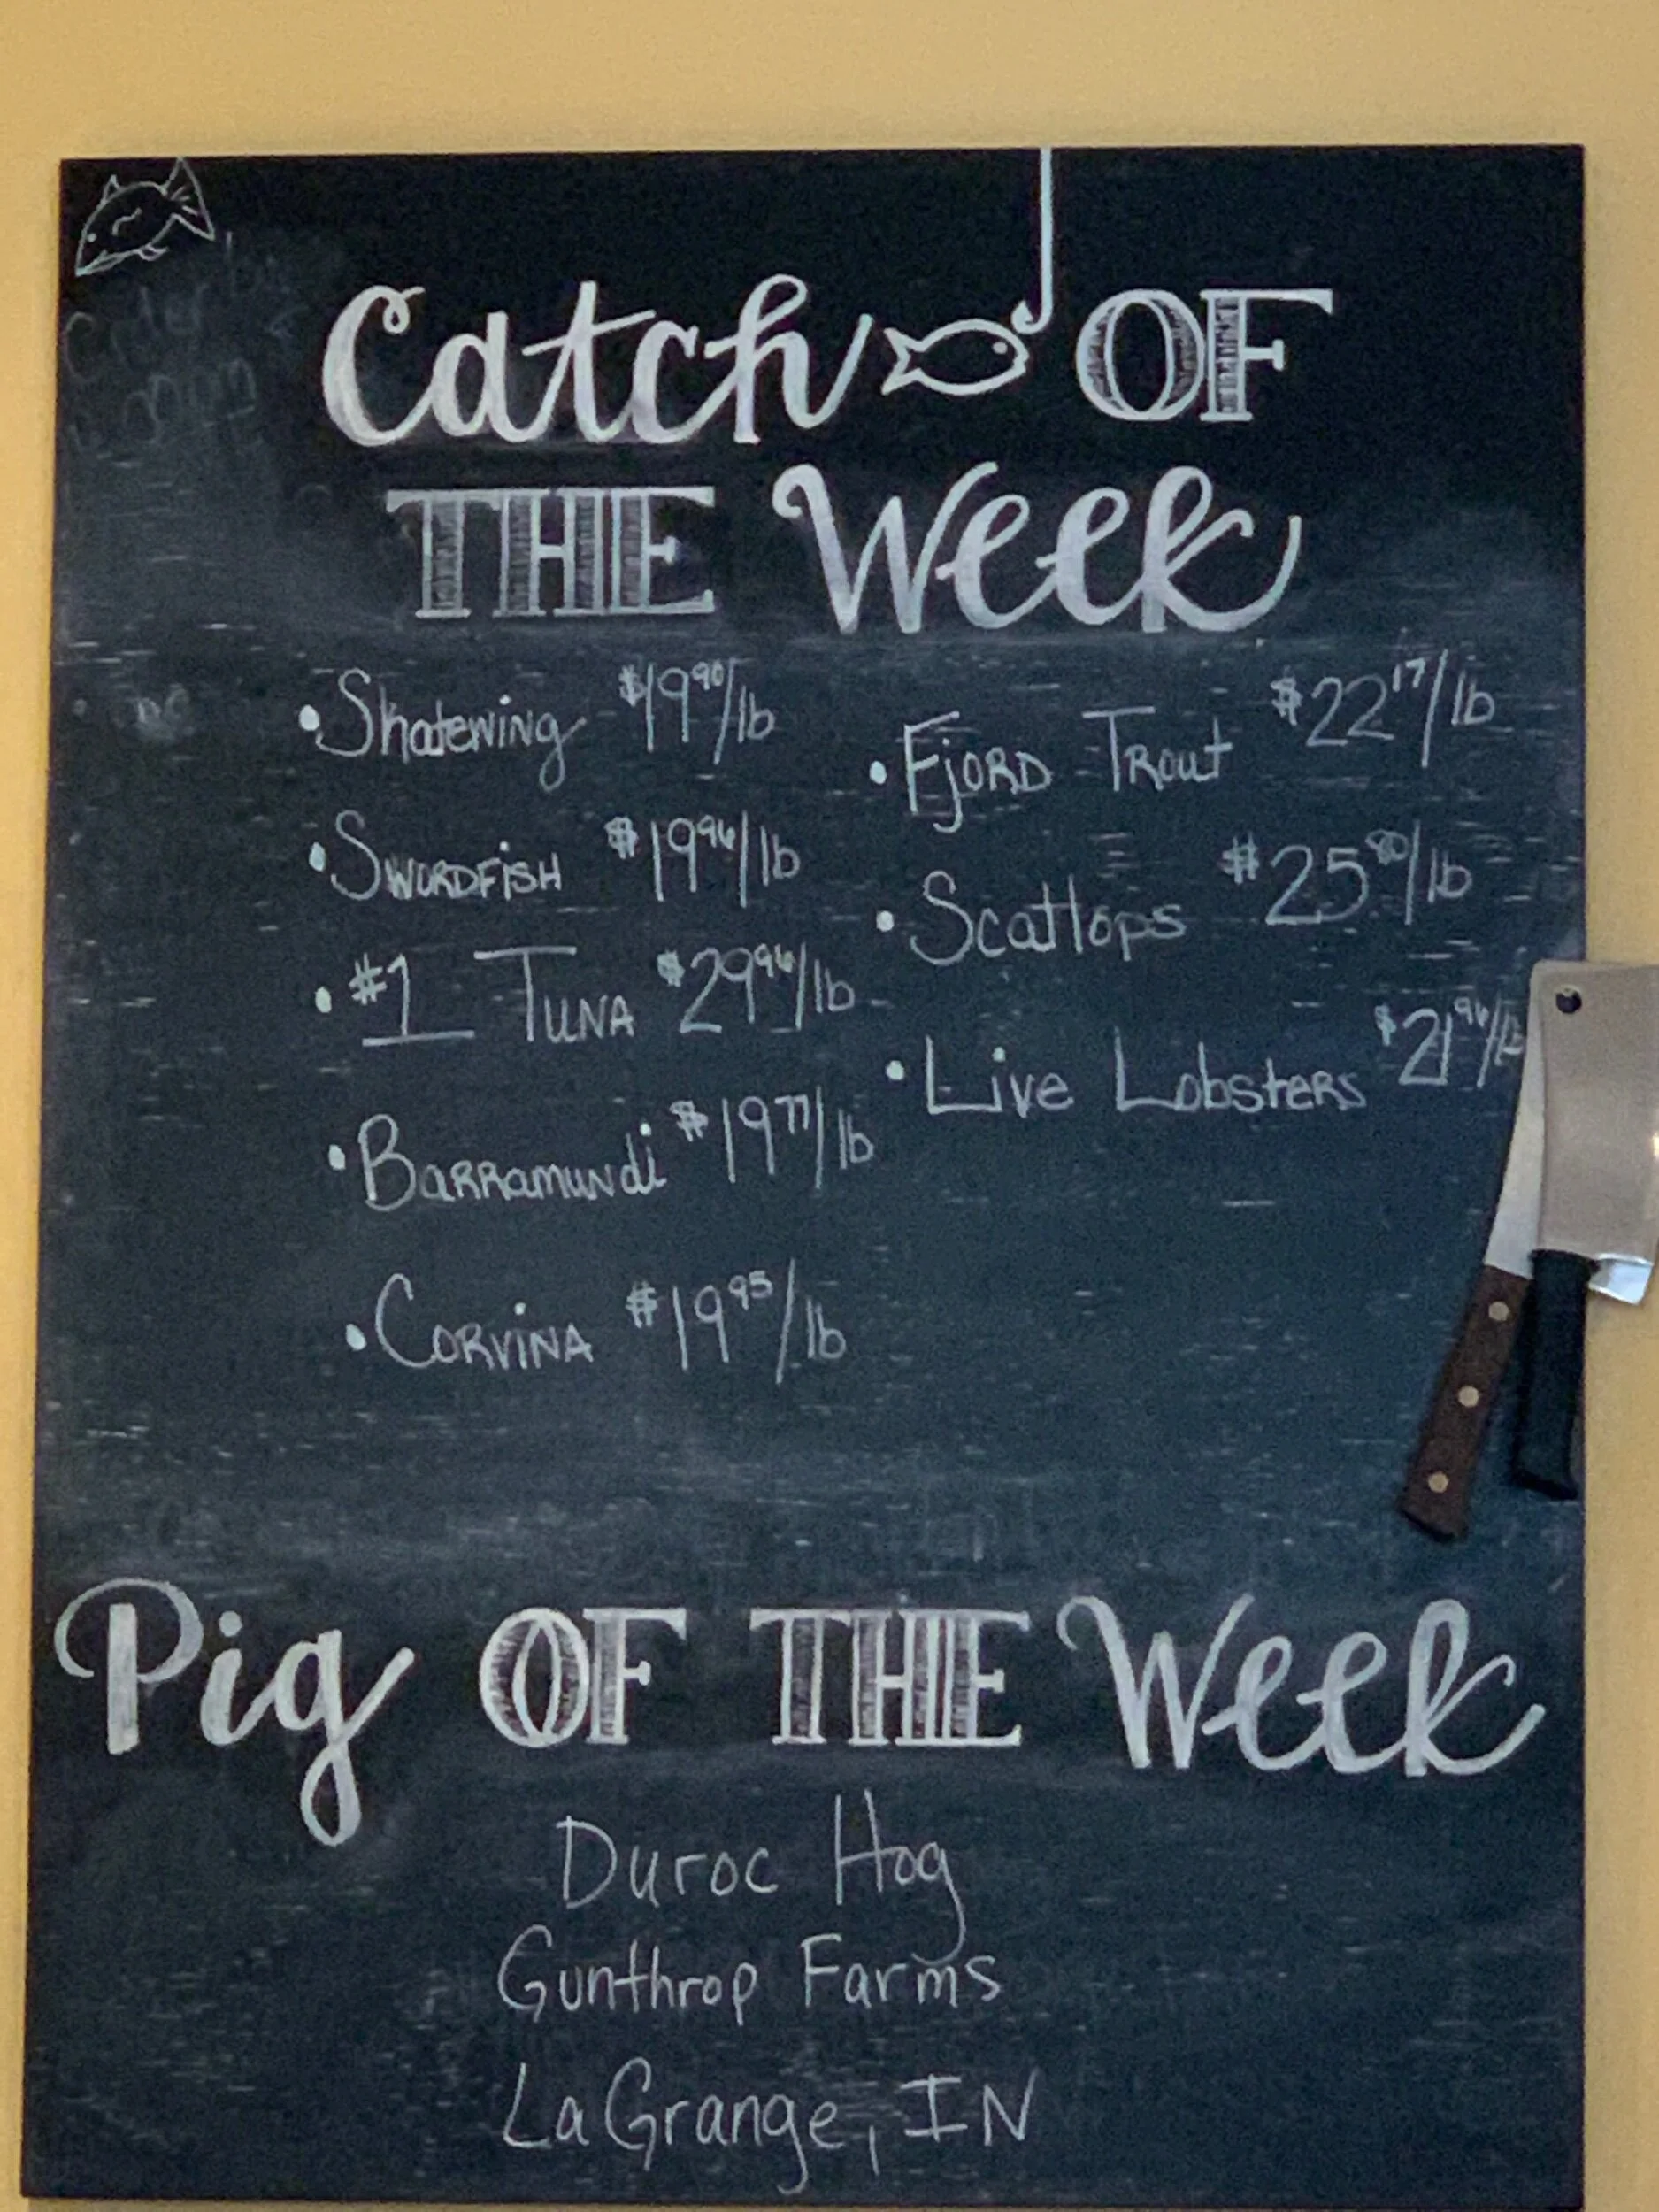 Catch OF
THE Week
• Skatewing $19.90/lb
• Swordfish $19.96/lb
• #1 Tuna $29.96/lb
• Barramundi $19.77/lb
• Corvina $19.95/lb
• Fjord Trout $22.17/lb
• Scallops $25.80/lb
• Live Lobsters $21.96/lb
Pig OF THE Week
Duroc Hog
Gunthrop Farms
LaGrange, IN